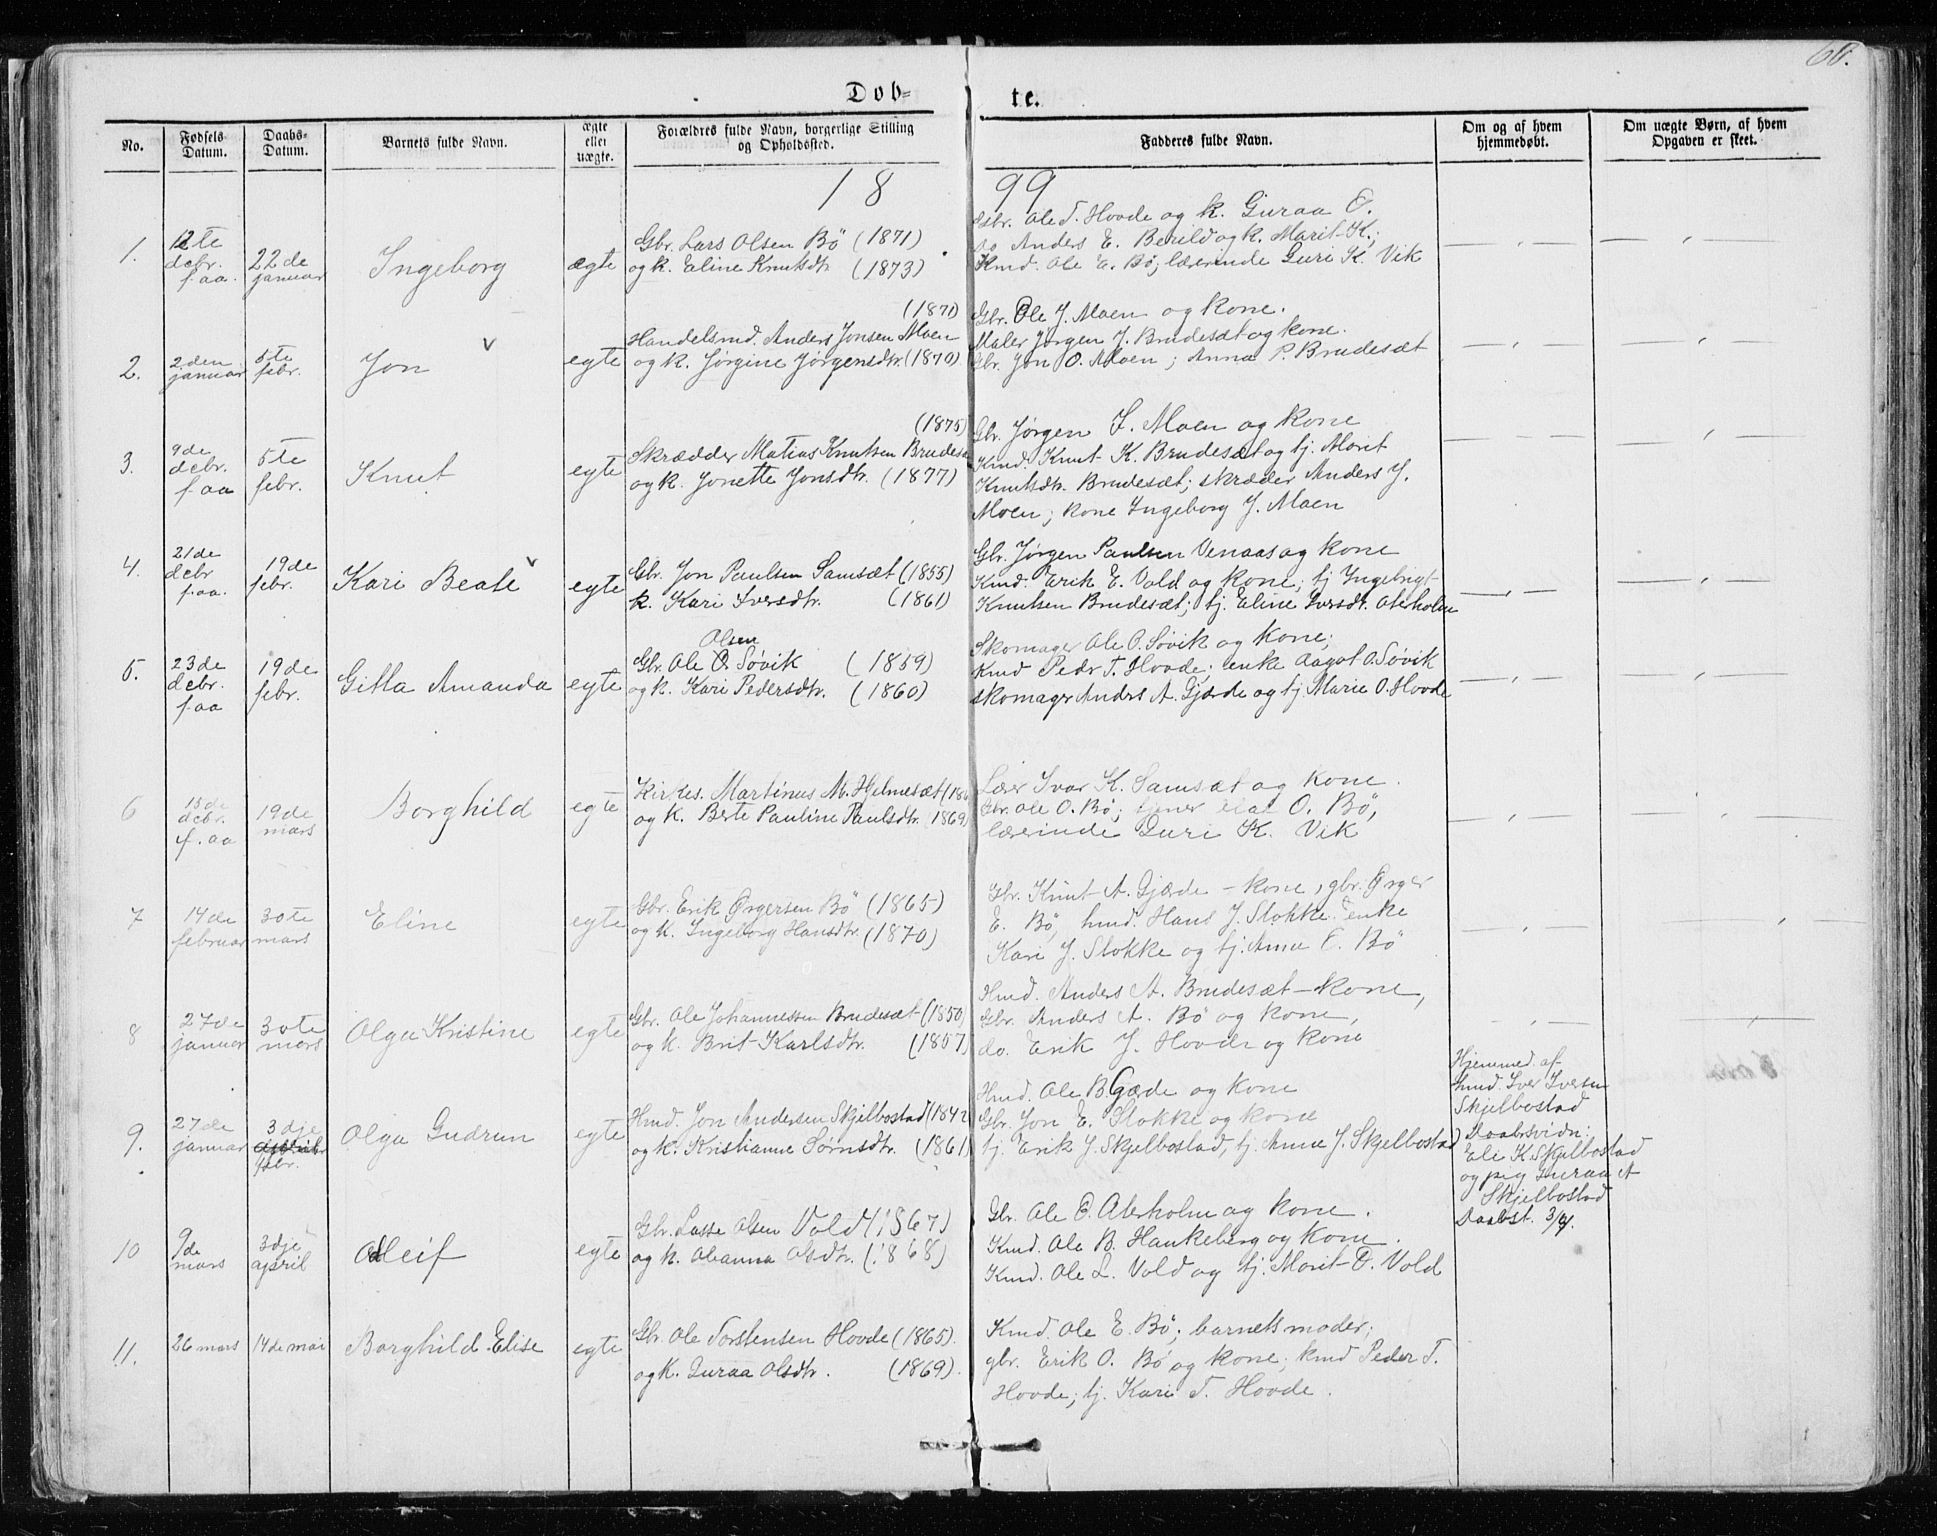 60.
Døb-
te.
No.
Fødsels Datum.
Daabs- Datum.
Barnets fulde Navn.
ægte eller uægte.
Forældres fulde Navn, borgerlige Stilling og Opholdssted.
Fadderes fulde Navn.
Om og af hvem hjemmedøbt.
Om uægte Børn, af hvem Opgaven er skeet.
18 99
1.
12te debr. f. aa.
22de januar
Ingeborg
ægte
Gbr. Lars Olsen Bø (1871)
og k. Eline Knutsdtr. (1873)
Gbr. Ole T. Hovde og k. Guraa E.
do Anders E. Berild og k. Marit K.;
Kmd. Ole E. Bø; lærerinde Guri K. Vik
2.
2den januar
5te febr.
Jon
egte
(1871)
Handelsmd. Anders Jonsen Moen
og k. Jørgine Jørgensdtr. (1870)
Gbr. Ole J. Moen og kone.
Maler Jørgen J. Brudesæt og kone.
Gbr. Jon O. Moen; Anna P. Brudesæt
3.
9de debr. f aa
5te febr.
Knut
egte
(1875)
Skrædder Matias Knutsen Brudesæ
og k. Jonette Jonsdtr. (1877)
Gbr. Jørgen L. Moen og kone
Kmd. Knut K. Brudesæt og tj. Marit
Knutsdtr. Brudesæt; skræder Anders J.
Moen; kone Ingeborg J. Moen
4.
21de debr f. aa.
19de febr.
Kari Beate
egte
Gbr. Jon Paulsen Samsæt (1855)
k. Kari Iversdtr. (1861)
Gbr. Jørgen Paulsen Venaas og kone
Kmd. Erik E. Vold og kone; tj Ingebrigt
Knutsen Brudesæt; tj. Eline Iversdt. Aterholm
5.
23de debr. f aa
19de febr.
Gitta Amanda
egte
Olsen
Gbr. Ole O. Søvik (1859)
og k. Kari Pedersdtr. (1860)
Skomager Ole O. Søvik og kone;
Kmd Pedr T. Hovde; enke Aagot O. Søvik
skomager Anders A. Gjærde og tj. Marie O. Hovde
6
15de debr. f. aa
19de mars
Borghild
egte
Kirkes. Martinus M. Hjelmesæt (186
og k. Berte Pauline Paulsdtr. (1869)
Lærer Ivar K. Samsæt og kone.
Gbr. Ole O. Bø; O. Bø,
lærerinde Guri K. Vik
7
14de februar
30te mars
Eline
egte
Gbr. Erik Ørgersen Bø (1865)
og k. Ingeborg Hansdtr. (1870)
Gbr. Knut A. Gjærde - kone, gbr. Ørger
E. Bø, kmd. Hans J. Stokke. enke
Kari J. Stokke og tj. Anne E. Bø
8
27de januar
30te mars
Olga Kristine
egte
Gbr. Ole Johannessen Brudesæt (1850)
og k. Brit Karlsdtr. (1857)
Hmd. Anders A. Brudesæt - kone,
Gbr. Anders A. Bø og kone,
do. Erik J. Hovde og kone
9.
27de januar
3dje april febr.
Olga Gudrun
egte
Hmd. Jon Andersen Skjelbostad (1842
og k. Kristianne Sørnsdtr. (1861)
Hmd. Ole B. Gæde og kone
Gbr. Jon E. Stokke og kone
tj. Erik J. Skjelbostad, tj. Anne J. Skjelbostad
Hjemmed. af
hmd. Iver Iversen
Skjelbostad
Daabsvidn:
Eli K. Skjelbostad
og pig Guraa A
Skjelbostad
Daabst. 3/4.
10
9de mars
3dje april
Oleif
egte
Gbr. Lasse Olsen Vold (1867)
og k. Oleanna Olsdtr. (1868)
Gbr. Ole E. Aterholm og kone.
Kmd. Ole B. Haukeberg og kone.
Kmd. Ole L. Vold og tj. Marit O. Vold
11.
26 mars
14de mai
Borghild Elise
egte
Gbr. Ole Torstensen Hovde (1865).
og k. Guraa Olsdtr. (1869).
Kmd. Ole E. Bø; barnets moder;
gbr. Erik O. Bø og kone; kmd Peder T.
Hovde; tj. Kari T. Hovde.